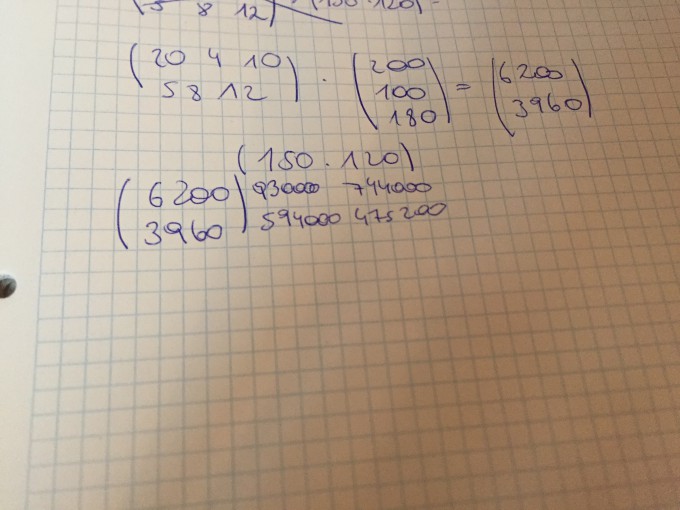 8 12) (150 · 120) =
(20 4 10
5 8 12) · (200
100
180) = (6200
3960)
(150 · 120)
(6200) 93000 744000
(3960) 594000 475200